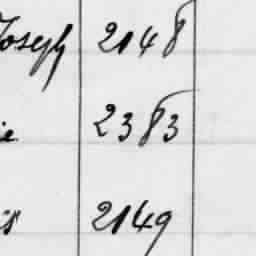 Joseph 2148
ie 2383
is 2149